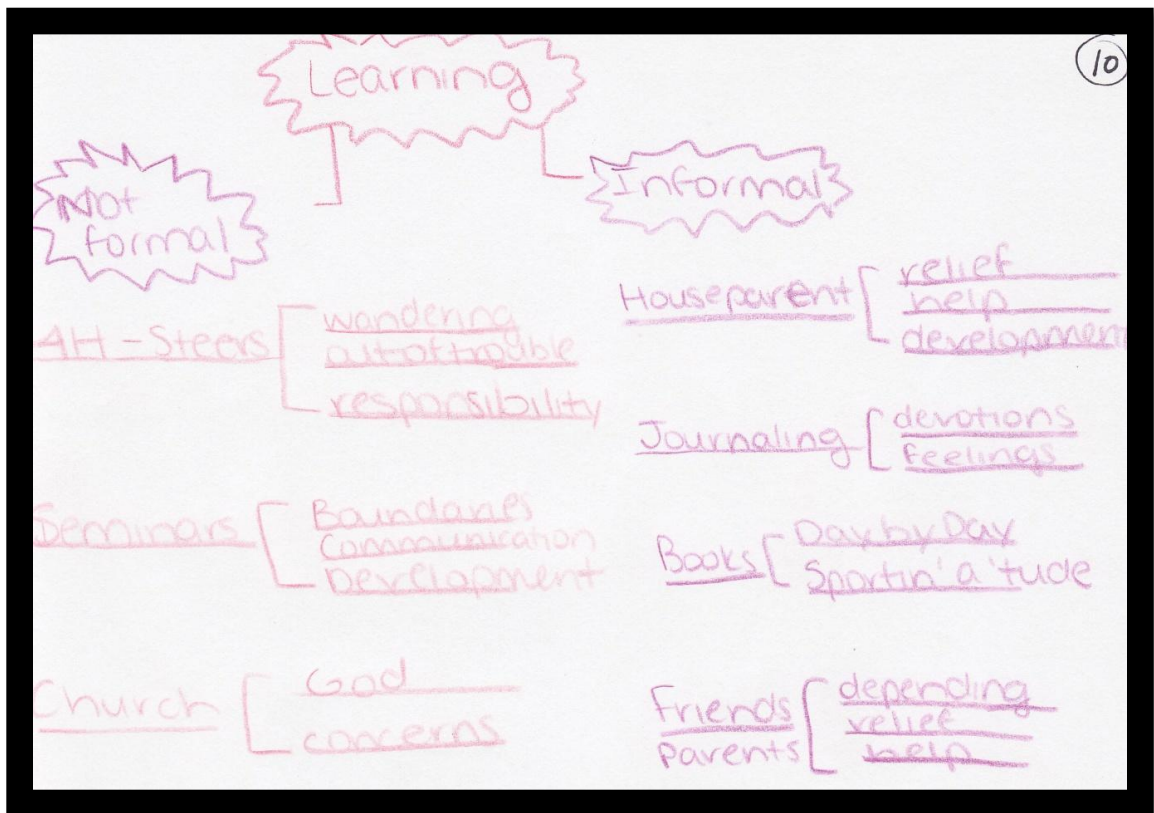 10
Learning
Not
formal
4H-Steers
wandering
out of trouble
responsibility
Seminars
Boundaries
Communication
Development
Church
God
concerns
Informal
Houseparent
relief
help
development
Journaling
devotions
feelings
Books
Day by Day
Sportin' a 'tude
Friends
parents
depending
relief
help